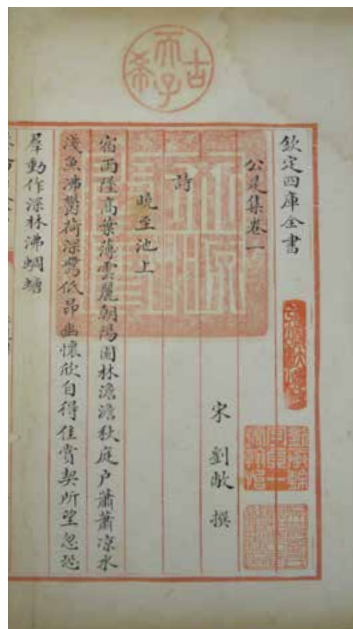 古希天子
欽定四庫全書
公是集卷一
宋 劉敞 撰
詩
曉至池上
宿雨墜高葉薄雲麗朝陽園林澹澹秋庭户蕭蕭凉水
淺魚沸鬱荷深鷺低昂幽懷欣自得佳賞契所望忽恐
羣動作深林沸蜩螗